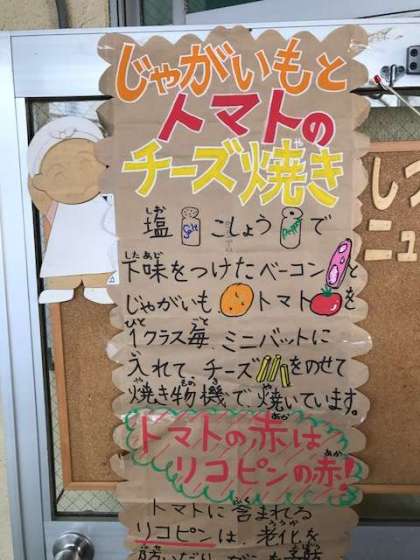 じゃがいもと
トマトの
チーズ焼き
塩 Salt こしょう Pepper で
下味をつけたベーコンと
じゃがいも トマト を
1クラス毎 ミニバットに
入れて、チーズ をのせて
焼き物機で焼いています。
トマトの赤は
リコピンの赤!
トマトに含まれる
リコピンは、老化を